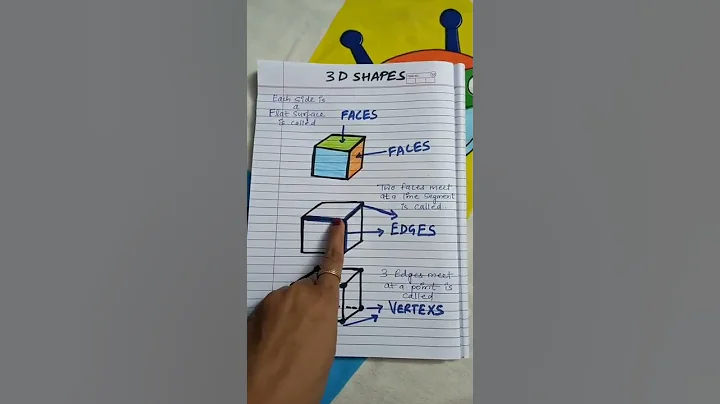 3D SHAPES
Each side is
a
Flat surface
is called
FACES
FACES
Two faces meet
at a line segment
is called
EDGES
3 Edges meet
at a point is
called
VERTEXS